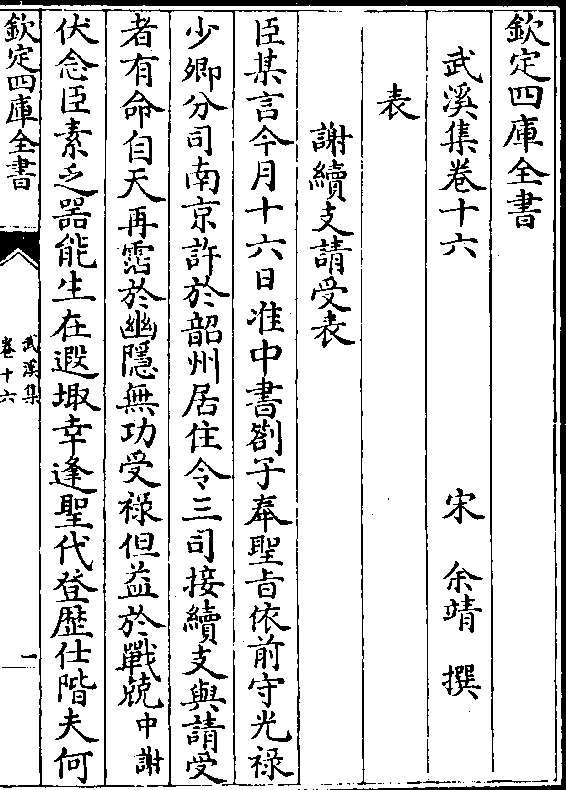 欽定四庫全書
武溪集卷十六
宋 余靖 撰
表
謝續支請受表
臣某言今月十六日准中書劄子奉聖旨依前守光禄
少卿分司南京許於韶州居住令三司接續支與請受
者有命自天再霑於幽隱無功受禄但益於戰兢中謝
伏念臣素乏器能生在遐陬幸逢聖代登歴仕階夫何
欽定四庫全書
武溪集
卷十六
一